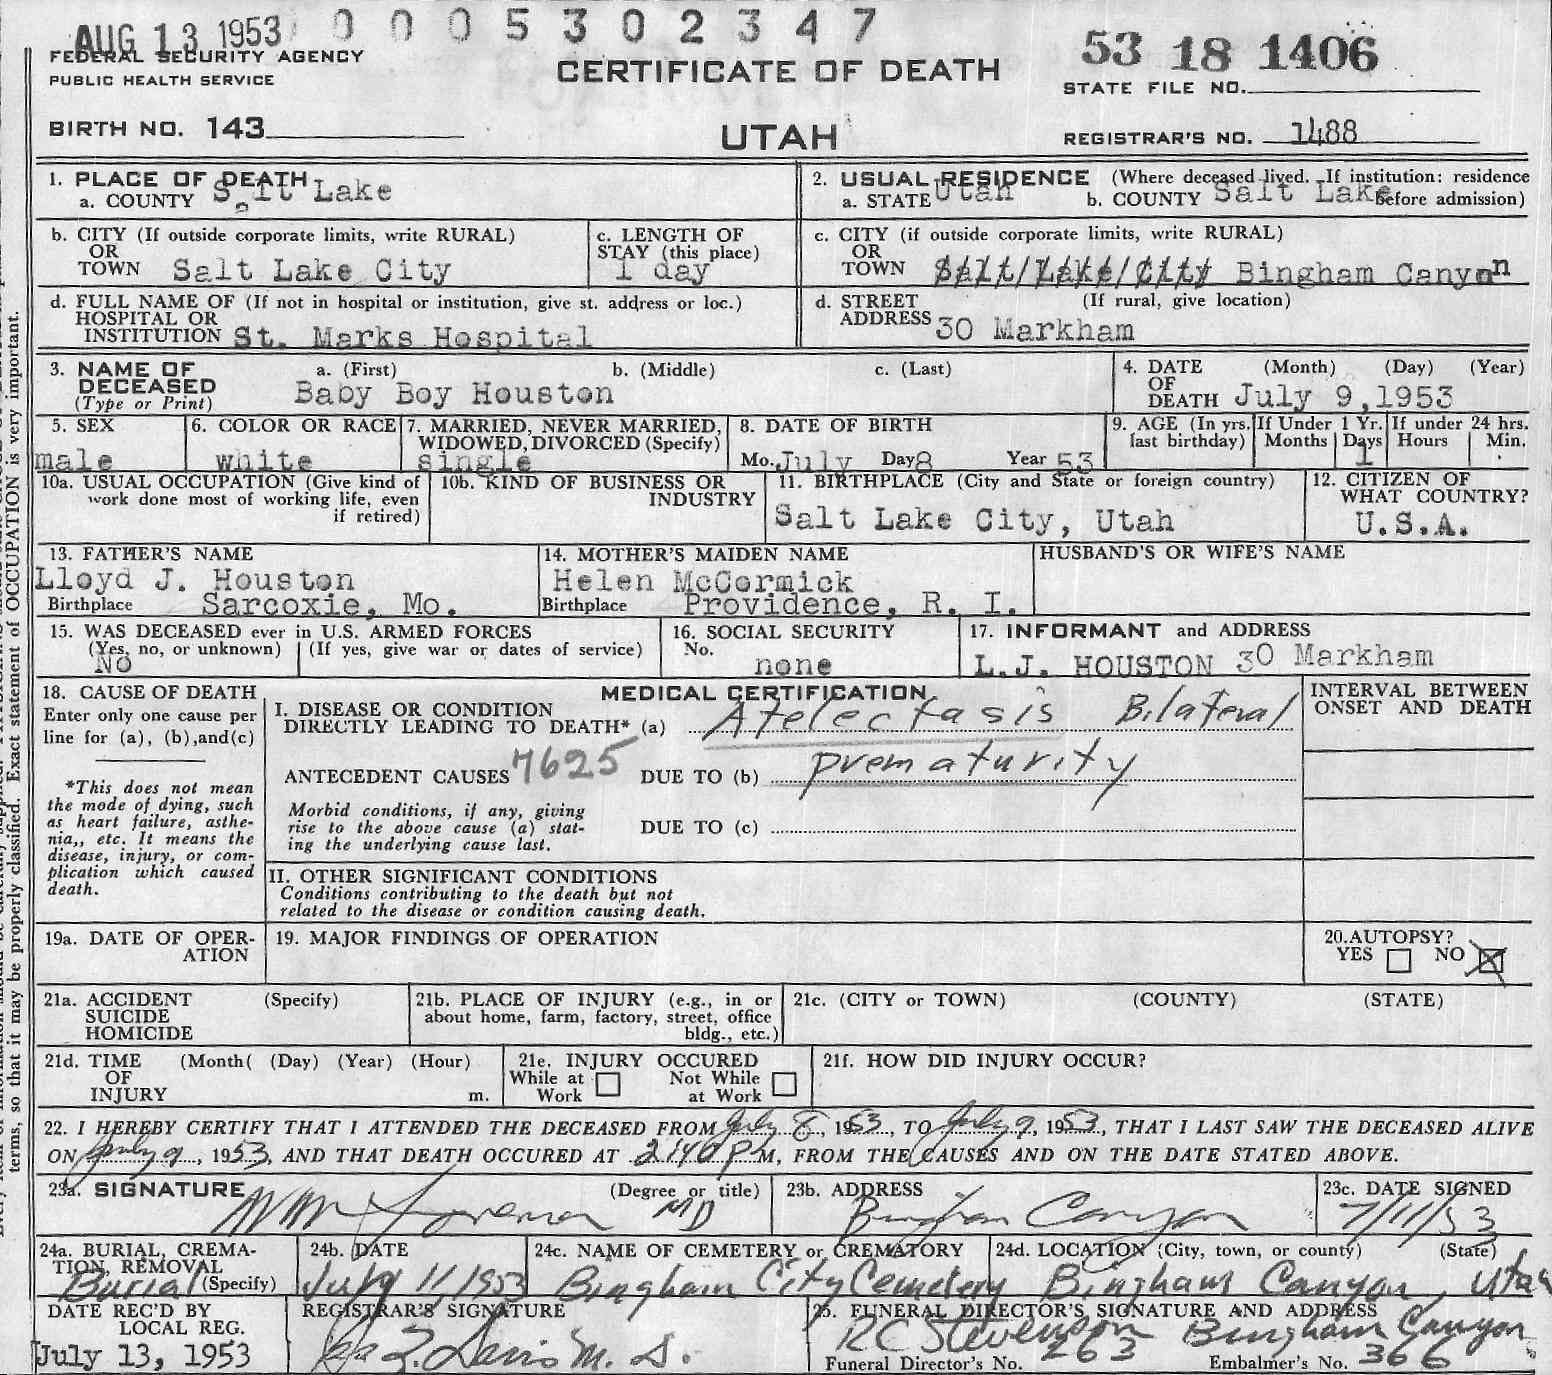 AUG 13 1953 0 0 0 5 3 0 2 3 4 7
FEDERAL SECURITY AGENCY
PUBLIC HEALTH SERVICE
CERTIFICATE OF DEATH
53 18 1406
STATE FILE NO.
BIRTH NO. 143
UTAH
REGISTRAR'S NO. 1488
1. PLACE OF DEATH
a. COUNTY Salt Lake
2. USUAL RESIDENCE (Where deceased lived. If institution: residence
a. STATE Utah b. COUNTY Salt Lake before admission)
b. CITY (If outside corporate limits, write RURAL)
OR
TOWN Salt Lake City
c. LENGTH OF
STAY (this place)
1 day
c. CITY (if outside corporate limits, write RURAL)
OR
TOWN Salt/Lake/City Bingham Canyon
d. FULL NAME OF (If not in hospital or institution, give st. address or loc.)
HOSPITAL OR
INSTITUTION St. Marks Hospital
d. STREET (If rural, give location)
ADDRESS 30 Markham
3. NAME OF a. (First) b. (Middle) c. (Last)
DECEASED Baby Boy Houston
(Type or Print)
4. DATE (Month) (Day) (Year)
OF
DEATH July 9, 1953
5. SEX
male
6. COLOR OR RACE
white
7. MARRIED, NEVER MARRIED,
WIDOWED, DIVORCED (Specify)
single
8. DATE OF BIRTH
Mo. July Day 8 Year 53
9. AGE (In yrs. last birthday)
If Under 1 Yr.
Months Days
1
If under 24 hrs.
Hours Min.
10a. USUAL OCCUPATION (Give kind of
work done most of working life, even
if retired)
10b. KIND OF BUSINESS OR
INDUSTRY
11. BIRTHPLACE (City and State or foreign country)
Salt Lake City, Utah
12. CITIZEN OF
WHAT COUNTRY?
U.S.A.
13. FATHER'S NAME
Lloyd J. Houston
Birthplace Sarcoxie, Mo.
14. MOTHER'S MAIDEN NAME
Helen McCormick
Birthplace Providence, R. I.
HUSBAND'S OR WIFE'S NAME
15. WAS DECEASED ever in U.S. ARMED FORCES
(Yes, no, or unknown) (If yes, give war or dates of service)
NO
16. SOCIAL SECURITY
No.
none
17. INFORMANT and ADDRESS
L.J. HOUSTON 30 Markham
18. CAUSE OF DEATH
Enter only one cause per
line for (a), (b),and(c)
*This does not mean
the mode of dying, such
as heart failure, asthe-
nia,, etc. It means the
disease, injury, or com-
plication which caused
death.
MEDICAL CERTIFICATION
I. DISEASE OR CONDITION
DIRECTLY LEADING TO DEATH* (a) Atelectasis Bilateral
ANTECEDENT CAUSES 7625 DUE TO (b) prematurity
Morbid conditions, if any, giving
rise to the above cause (a) stat-
ing the underlying cause last.
DUE TO (c)
INTERVAL BETWEEN
ONSET AND DEATH
II. OTHER SIGNIFICANT CONDITIONS
Conditions contributing to the death but not
related to the disease or condition causing death.
19a. DATE OF OPER-
ATION
19. MAJOR FINDINGS OF OPERATION
20. AUTOPSY?
YES NO
21a. ACCIDENT (Specify)
SUICIDE
HOMICIDE
21b. PLACE OF INJURY (e.g., in or
about home, farm, factory, street, office
bldg., etc.)
21c. (CITY or TOWN) (COUNTY) (STATE)
21d. TIME (Month( (Day) (Year) (Hour)
OF
INJURY m.
21e. INJURY OCCURED
While at Work Not While at Work
21f. HOW DID INJURY OCCUR?
22. I HEREBY CERTIFY THAT I ATTENDED THE DECEASED FROM July 8, 1953, TO July 9, 1953, THAT I LAST SAW THE DECEASED ALIVE
ON July 9, 1953, AND THAT DEATH OCCURED AT 2:40 P M, FROM THE CAUSES AND ON THE DATE STATED ABOVE.
23a. SIGNATURE (Degree or title)
MD
23b. ADDRESS
Bingham Canyon
23c. DATE SIGNED
7/11/53
24a. BURIAL, CREMA-
TION, REMOVAL
Burial (Specify)
24b. DATE
July 11, 1953
24c. NAME OF CEMETERY or CREMATORY
Bingham City Cemetery
24d. LOCATION (City, town, or county) (State)
Bingham Canyon, Utah
DATE REC'D BY
LOCAL REG.
July 13, 1953
REGISTRAR'S SIGNATURE
Davis M. D.
25. FUNERAL DIRECTOR'S SIGNATURE AND ADDRESS
RC Stevenson Bingham Canyon
Funeral Director's No. 263 Embalmer's No. 366
terms, so that it may be properly classified. Exact statement of OCCUPATION is very important.